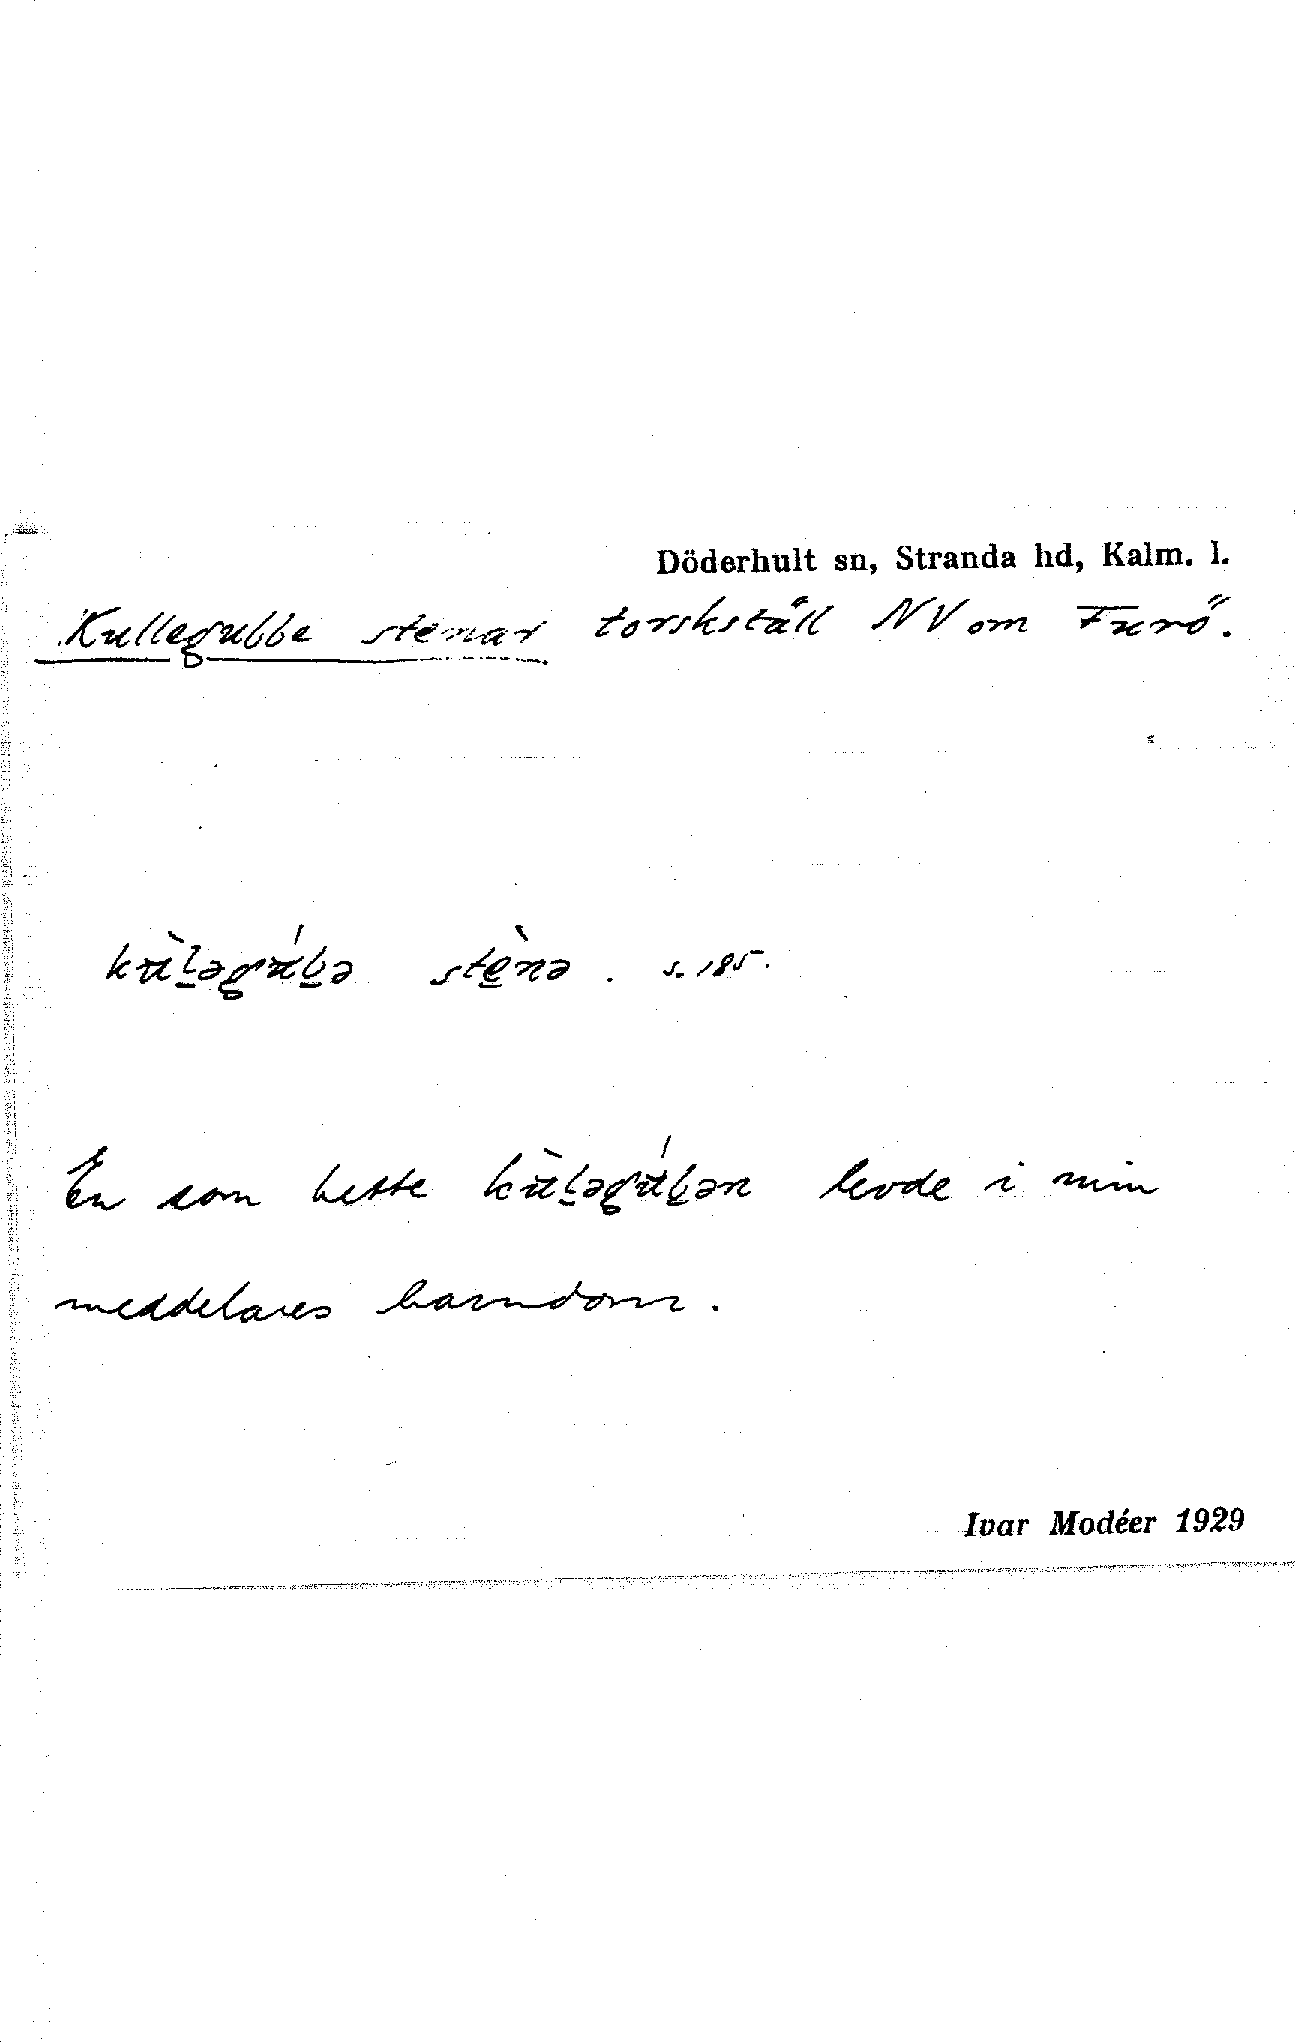 Döderhult sn, Stranda hd, Kalm. l.
Kullegubbe stenar torskställ NV om Furö.
kùl̲əgúb̲ə stè̲nə . s. 185.
En som hette kùl̲əgúb̲ən levde i min
meddelares barndom.
Ivar Modéer 1929